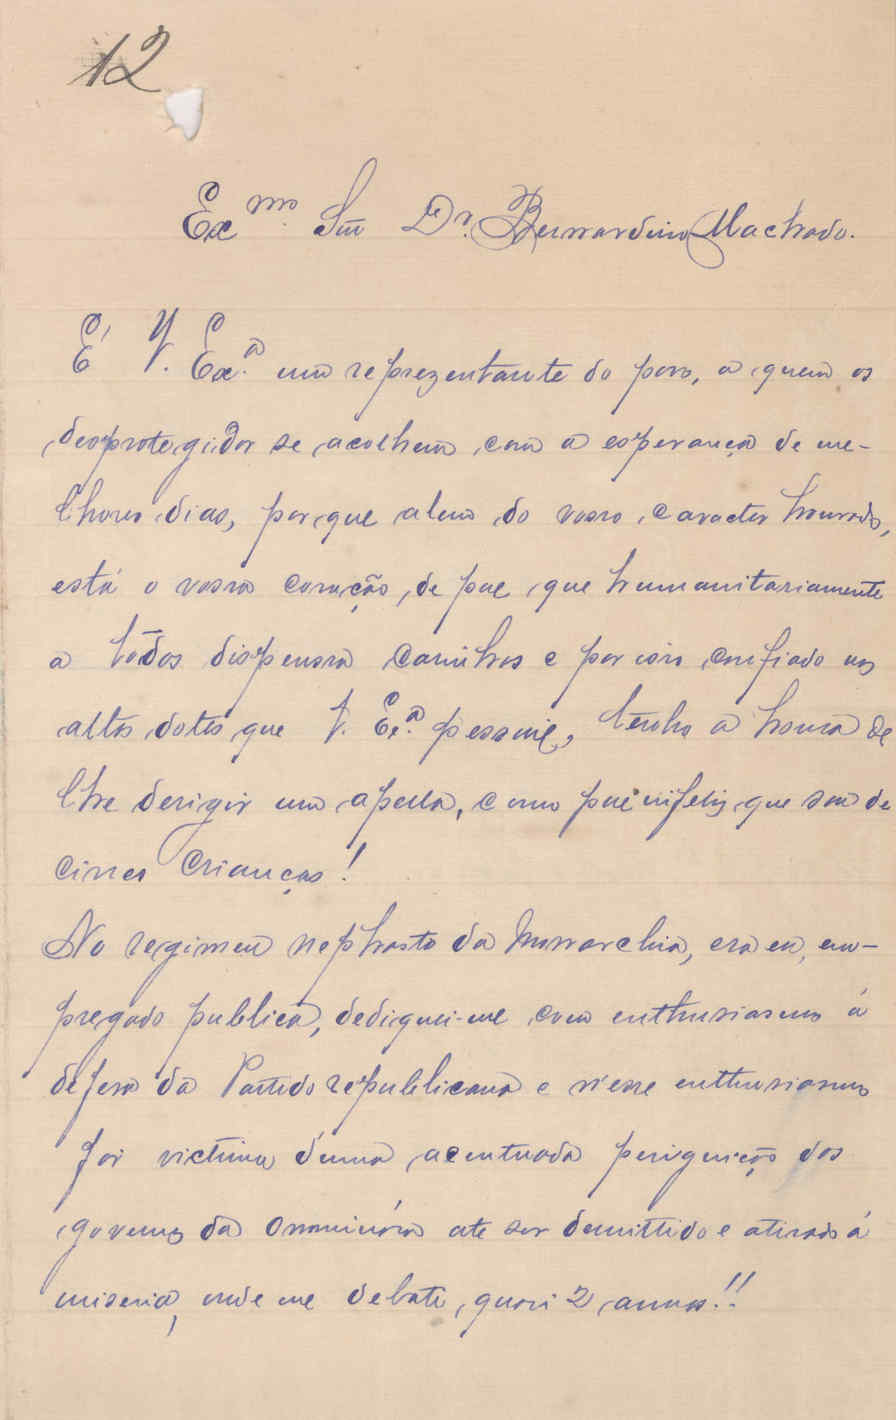 12
Exmo. Snr Dr. Bernardino Machado.
É V. Exa. um reprezentante do povo, a quem os
desprotegidos se acolhem com a esperança de me-
lhores dias, porque alem do vosso caracter honrado,
está o vosso coração de pae que humanitariamente
a todos dispensa carinhos e por isso confiado nos
altos dotes que V. Exa. possue, tenho a honra de
lhe derigir um apello, como pae infeliz que sou de
cinco crianças!
No regimen nephasto da Monarchia, era eu, em-
pregado publico, dediquei-me com enthusiasmo á
defesa do Partido republicano e n'esse enthusiasmo
foi victima d'uma acentuada persiguição dos
governos da ominiosa ate ser demittido e atirado á
miseria, onde me debato, quasi 2 annos!!